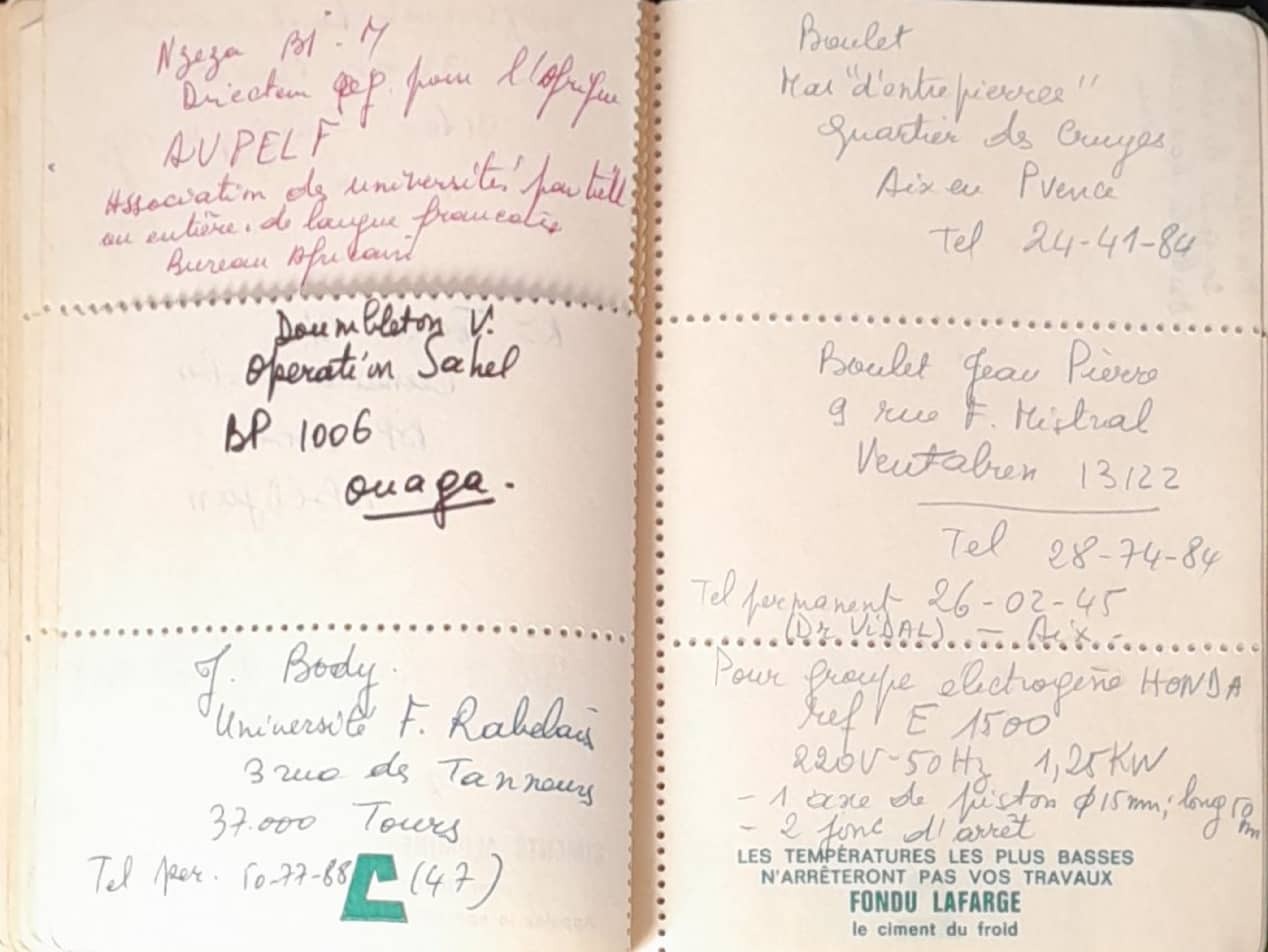 Nzeza Bl. M
Directeur reg. pour l'Afrique
AUPELF
Association des universités partiell
ou entière. de langue francaise
Bureau Africain
Doumbleton V.
Operation Sahel
BP 1006
ouaga.
J. Body.
Université F. Rabelais
3 rue des Tanneurs
37.000 Tours
Tel per. 50-77-88 (47)
Boulet
Mas "d'entrepierres"
Quartier des Cruyes
Aix en Pvence
Tel 24-41-84
Boulet Jean Pierre
9 rue F. Mistral
Ventabren 13122
Tel 28-74-84
Tel permanent 26-02-45
(Dr ViDAL) - Aix -
Pour groupe electrogène HONDA
ref E 1500
220V-50Hz 1,25KW
- 1 axe de piston φ15mm; long 50 mm
- 2 jonc d'arrêt
LES TEMPÉRATURES LES PLUS BASSES
N'ARRÊTERONT PAS VOS TRAVAUX
FONDU LAFARGE
le ciment du froid